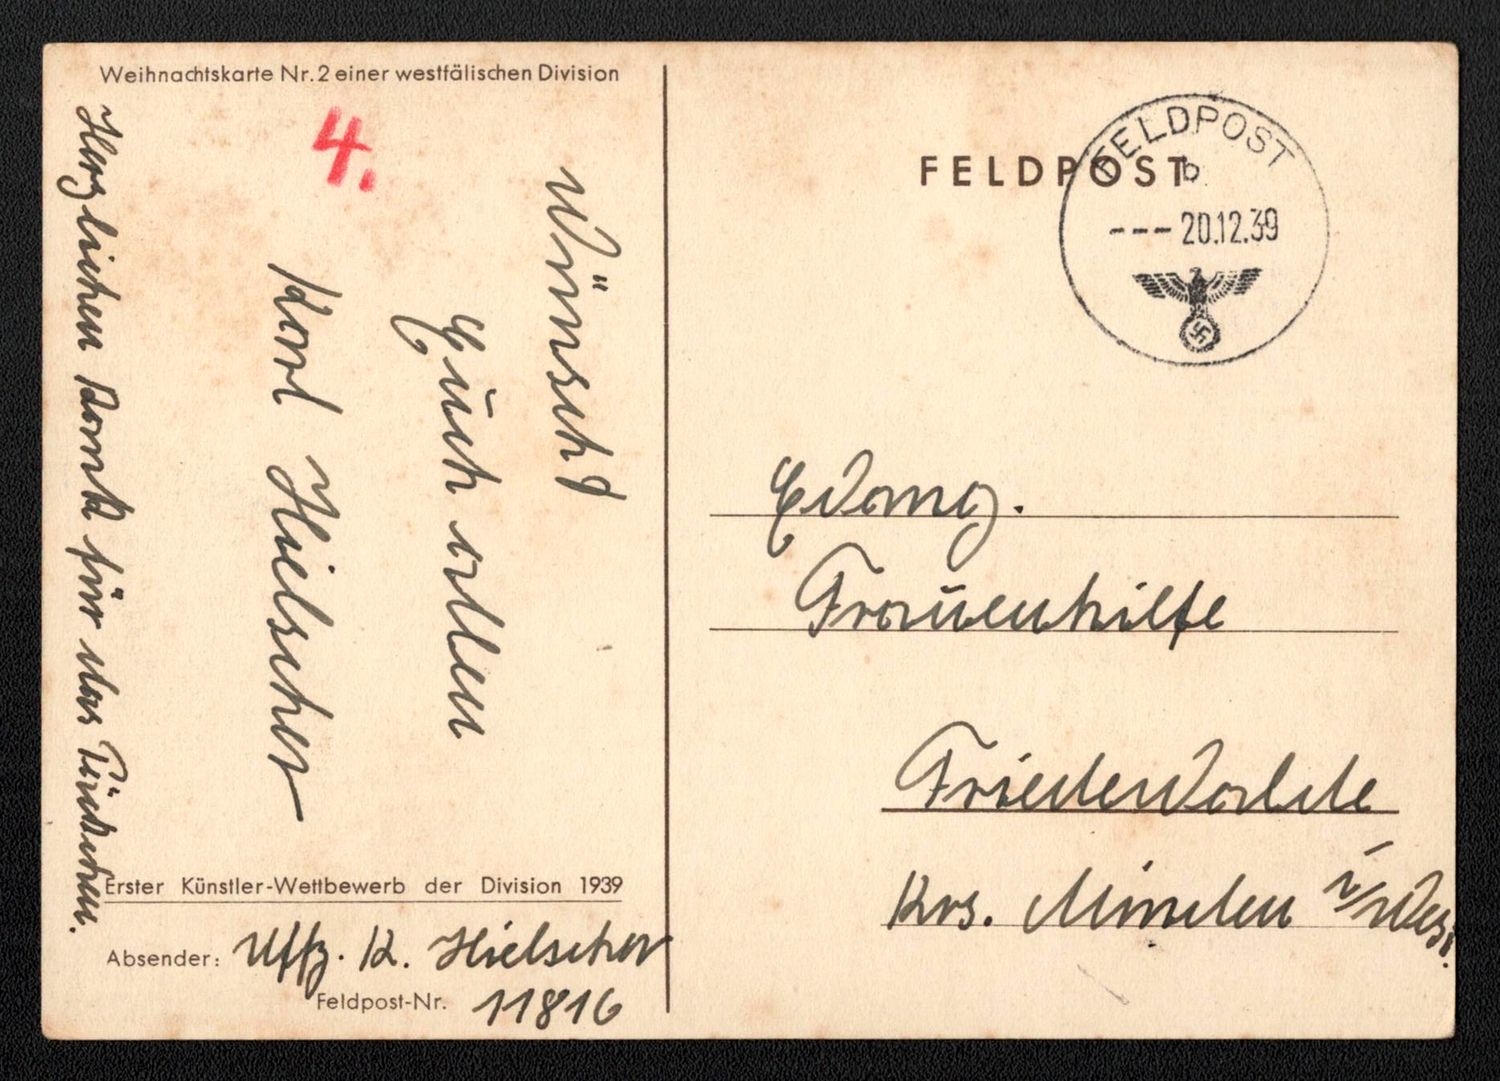 Weihnachtskarte Nr. 2 einer westfälischen Division
4.
Wünscht
Euch allen
Karl Hielscher
Herzlichen Dank für das Päckchen.
Erster Künstler-Wettbewerb der Division 1939
Absender: Uffz. K. Hielscher
Feldpost-Nr. 11816
FELDPOST
FELDPOST
b
--- 20.12.39
Evang.
Frauenhilfe
Friedewalde
Krs. Minden i/Wes.